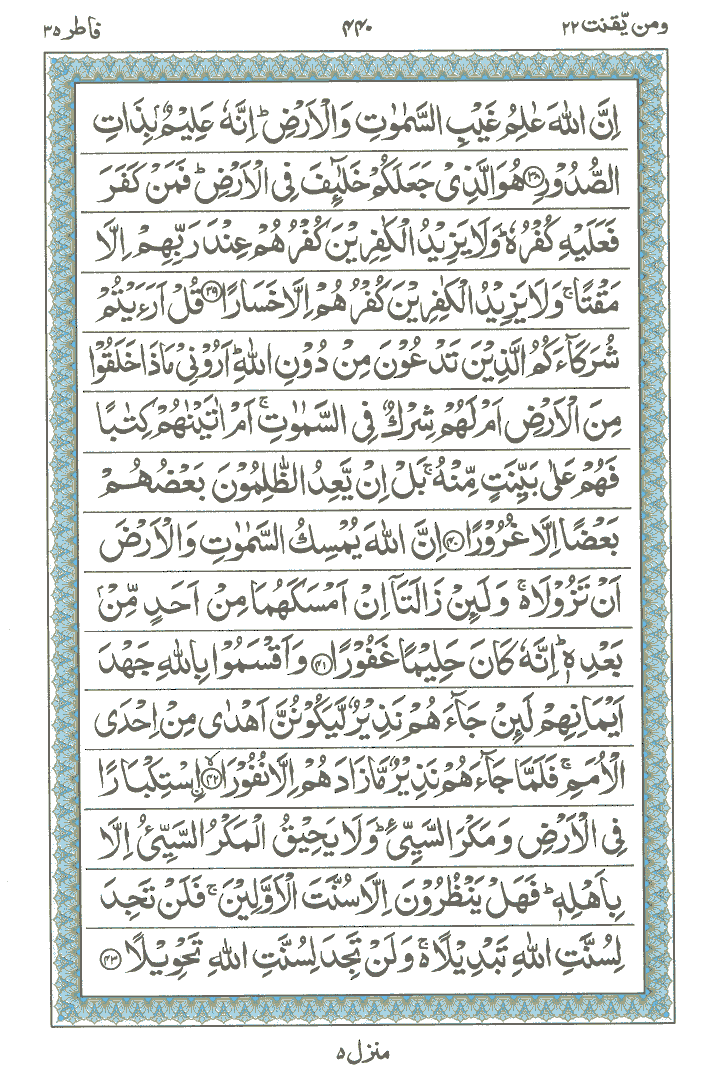 ومن یّقنت ۲۲ ۴۴۰ فاطر ۳۵
اِنَّ اللّٰهَ عٰلِمُ غَیْبِ السَّمٰوٰتِ وَالْاَرْضِ ؕ اِنَّهٗ عَلِیْمٌۢ بِذَاتِ
الصُّدُوْرِ ﴿۳۸﴾ هُوَ الَّذِیْ جَعَلَكُمْ خَلٰٓئِفَ فِی الْاَرْضِ ؕ فَمَنْ كَفَرَ
فَعَلَیْهِ كُفْرُهٗ ؕ وَلَا یَزِیْدُ الْكٰفِرِیْنَ كُفْرُهُمْ عِنْدَ رَبِّهِمْ اِلَّا
مَقْتًا ۚ وَلَا یَزِیْدُ الْكٰفِرِیْنَ كُفْرُهُمْ اِلَّا خَسَارًا ﴿۳۹﴾ قُلْ اَرَءَیْتُمْ
شُرَكَآءَكُمُ الَّذِیْنَ تَدْعُوْنَ مِنْ دُوْنِ اللّٰهِ ؕ اَرُوْنِیْ مَاذَا خَلَقُوْا
مِنَ الْاَرْضِ اَمْ لَهُمْ شِرْكٌ فِی السَّمٰوٰتِ ۚ اَمْ اٰتَیْنٰهُمْ كِتٰبًا
فَهُمْ عَلٰی بَیِّنَتٍ مِّنْهُ ۚ بَلْ اِنْ یَّعِدُ الظّٰلِمُوْنَ بَعْضُهُمْ
بَعْضًا اِلَّا غُرُوْرًا ﴿۴۰﴾ اِنَّ اللّٰهَ یُمْسِكُ السَّمٰوٰتِ وَالْاَرْضَ
اَنْ تَزُوْلَا ۚ۬ وَلَئِنْ زَالَتَاۤ اِنْ اَمْسَكَهُمَا مِنْ اَحَدٍ مِّنْۢ
بَعْدِهٖ ؕ اِنَّهٗ كَانَ حَلِیْمًا غَفُوْرًا ﴿۴۱﴾ وَاَقْسَمُوْا بِاللّٰهِ جَهْدَ
اَیْمَانِهِمْ لَئِنْ جَآءَهُمْ نَذِیْرٌ لَّیَكُوْنُنَّ اَهْدٰی مِنْ اِحْدَی
الْاُمَمِ ۚ فَلَمَّا جَآءَهُمْ نَذِیْرٌ مَّا زَادَهُمْ اِلَّا نُفُوْرًا ﴿۴۲﴾ اِسْتِكْبَارًا
فِی الْاَرْضِ وَمَكْرَ السَّیِّئِ ؕ وَلَا یَحِیْقُ الْمَكْرُ السَّیِّئُ اِلَّا
بِاَهْلِهٖ ؕ فَهَلْ یَنْظُرُوْنَ اِلَّا سُنَّتَ الْاَوَّلِیْنَ ۚ فَلَنْ تَجِدَ
لِسُنَّتِ اللّٰهِ تَبْدِیْلًا ۚ۬ وَلَنْ تَجِدَ لِسُنَّتِ اللّٰهِ تَحْوِیْلًا ﴿۴۳﴾
منزل ۵